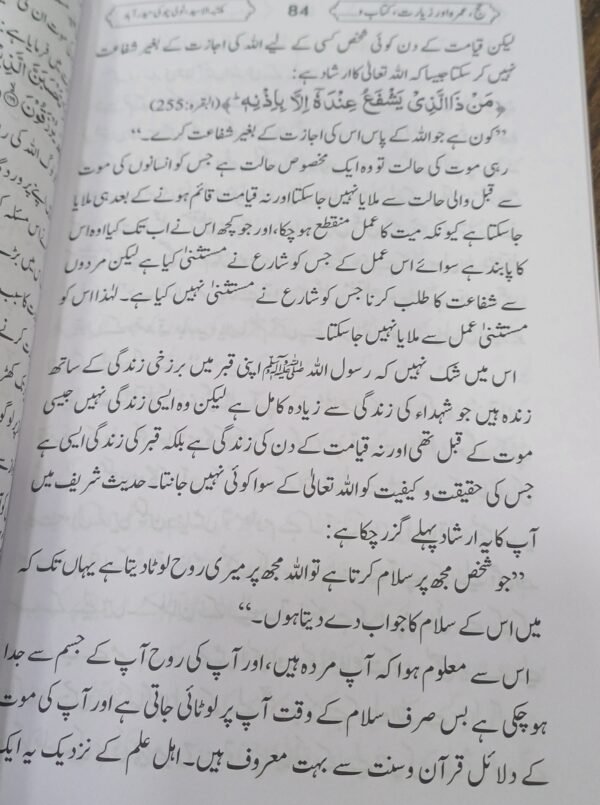 حج، عمرہ اور زیارت، کتاب و
84
لیکن قیامت کے دن کوئی شخص کسی کے لیے اللہ کی اجازت کے بغیر شفاعت
نہیں کر سکتا جیسا کہ اللہ تعالیٰ کا ارشاد ہے:
﴿مَنْ ذَا الَّذِیْ یَشْفَعُ عِنْدَهٗ اِلَّا بِاِذْنِهٖ ؕ﴾ (البقرہ:255)
’’کون ہے جو اللہ کے پاس اس کی اجازت کے بغیر شفاعت کرے۔‘‘
رہی موت کی حالت تو وہ ایک مخصوص حالت ہے جس کو انسانوں کی موت
سے قبل والی حالت سے ملایا نہیں جاسکتا اور نہ قیامت قائم ہونے کے بعد ہی ملایا
جاسکتا ہے کیونکہ میت کا عمل منقطع ہو چکا، اور جو کچھ اس نے اب تک کیا وہ اس
کا پابند ہے سوائے اس عمل کے جس کو شارع نے مستثنیٰ کیا ہے لیکن مردوں
سے شفاعت کا طلب کرنا جس کو شارع نے مستثنیٰ نہیں کیا ہے۔ لہٰذا اس کو
مستثنیٰ عمل سے ملایا نہیں جاسکتا۔
اس میں شک نہیں کہ رسول اللہ ﷺ اپنی قبر میں برزخی زندگی کے ساتھ
زندہ ہیں جو شہداء کی زندگی سے زیادہ کامل ہے لیکن وہ ایسی زندگی نہیں جیسی
موت کے قبل تھی اور نہ قیامت کے دن کی زندگی ہے بلکہ قبر کی زندگی ایسی ہے
جس کی حقیقت و کیفیت کو اللہ تعالیٰ کے سوا کوئی نہیں جانتا۔ حدیث شریف میں
آپ کا یہ ارشاد پہلے گزر چکا ہے:
’’جو شخص مجھ پر سلام کرتا ہے تو اللہ مجھ پر میری روح لوٹا دیتا ہے یہاں تک کہ
میں اس کے سلام کا جواب دے دیتا ہوں۔‘‘
اس سے معلوم ہوا کہ آپ مردہ ہیں، اور آپ کی روح آپ کے جسم سے جدا
ہو چکی ہے بس صرف سلام کے وقت آپ پر لوٹائی جاتی ہے اور آپ کی موت
کے دلائل قرآن و سنت سے بہت معروف ہیں۔ اہل علم کے نزدیک یہ ایک